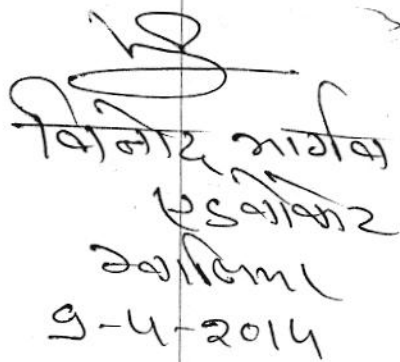 विनोद भार्गव
एडवोकेट
ग्वालियर
9-5-2015